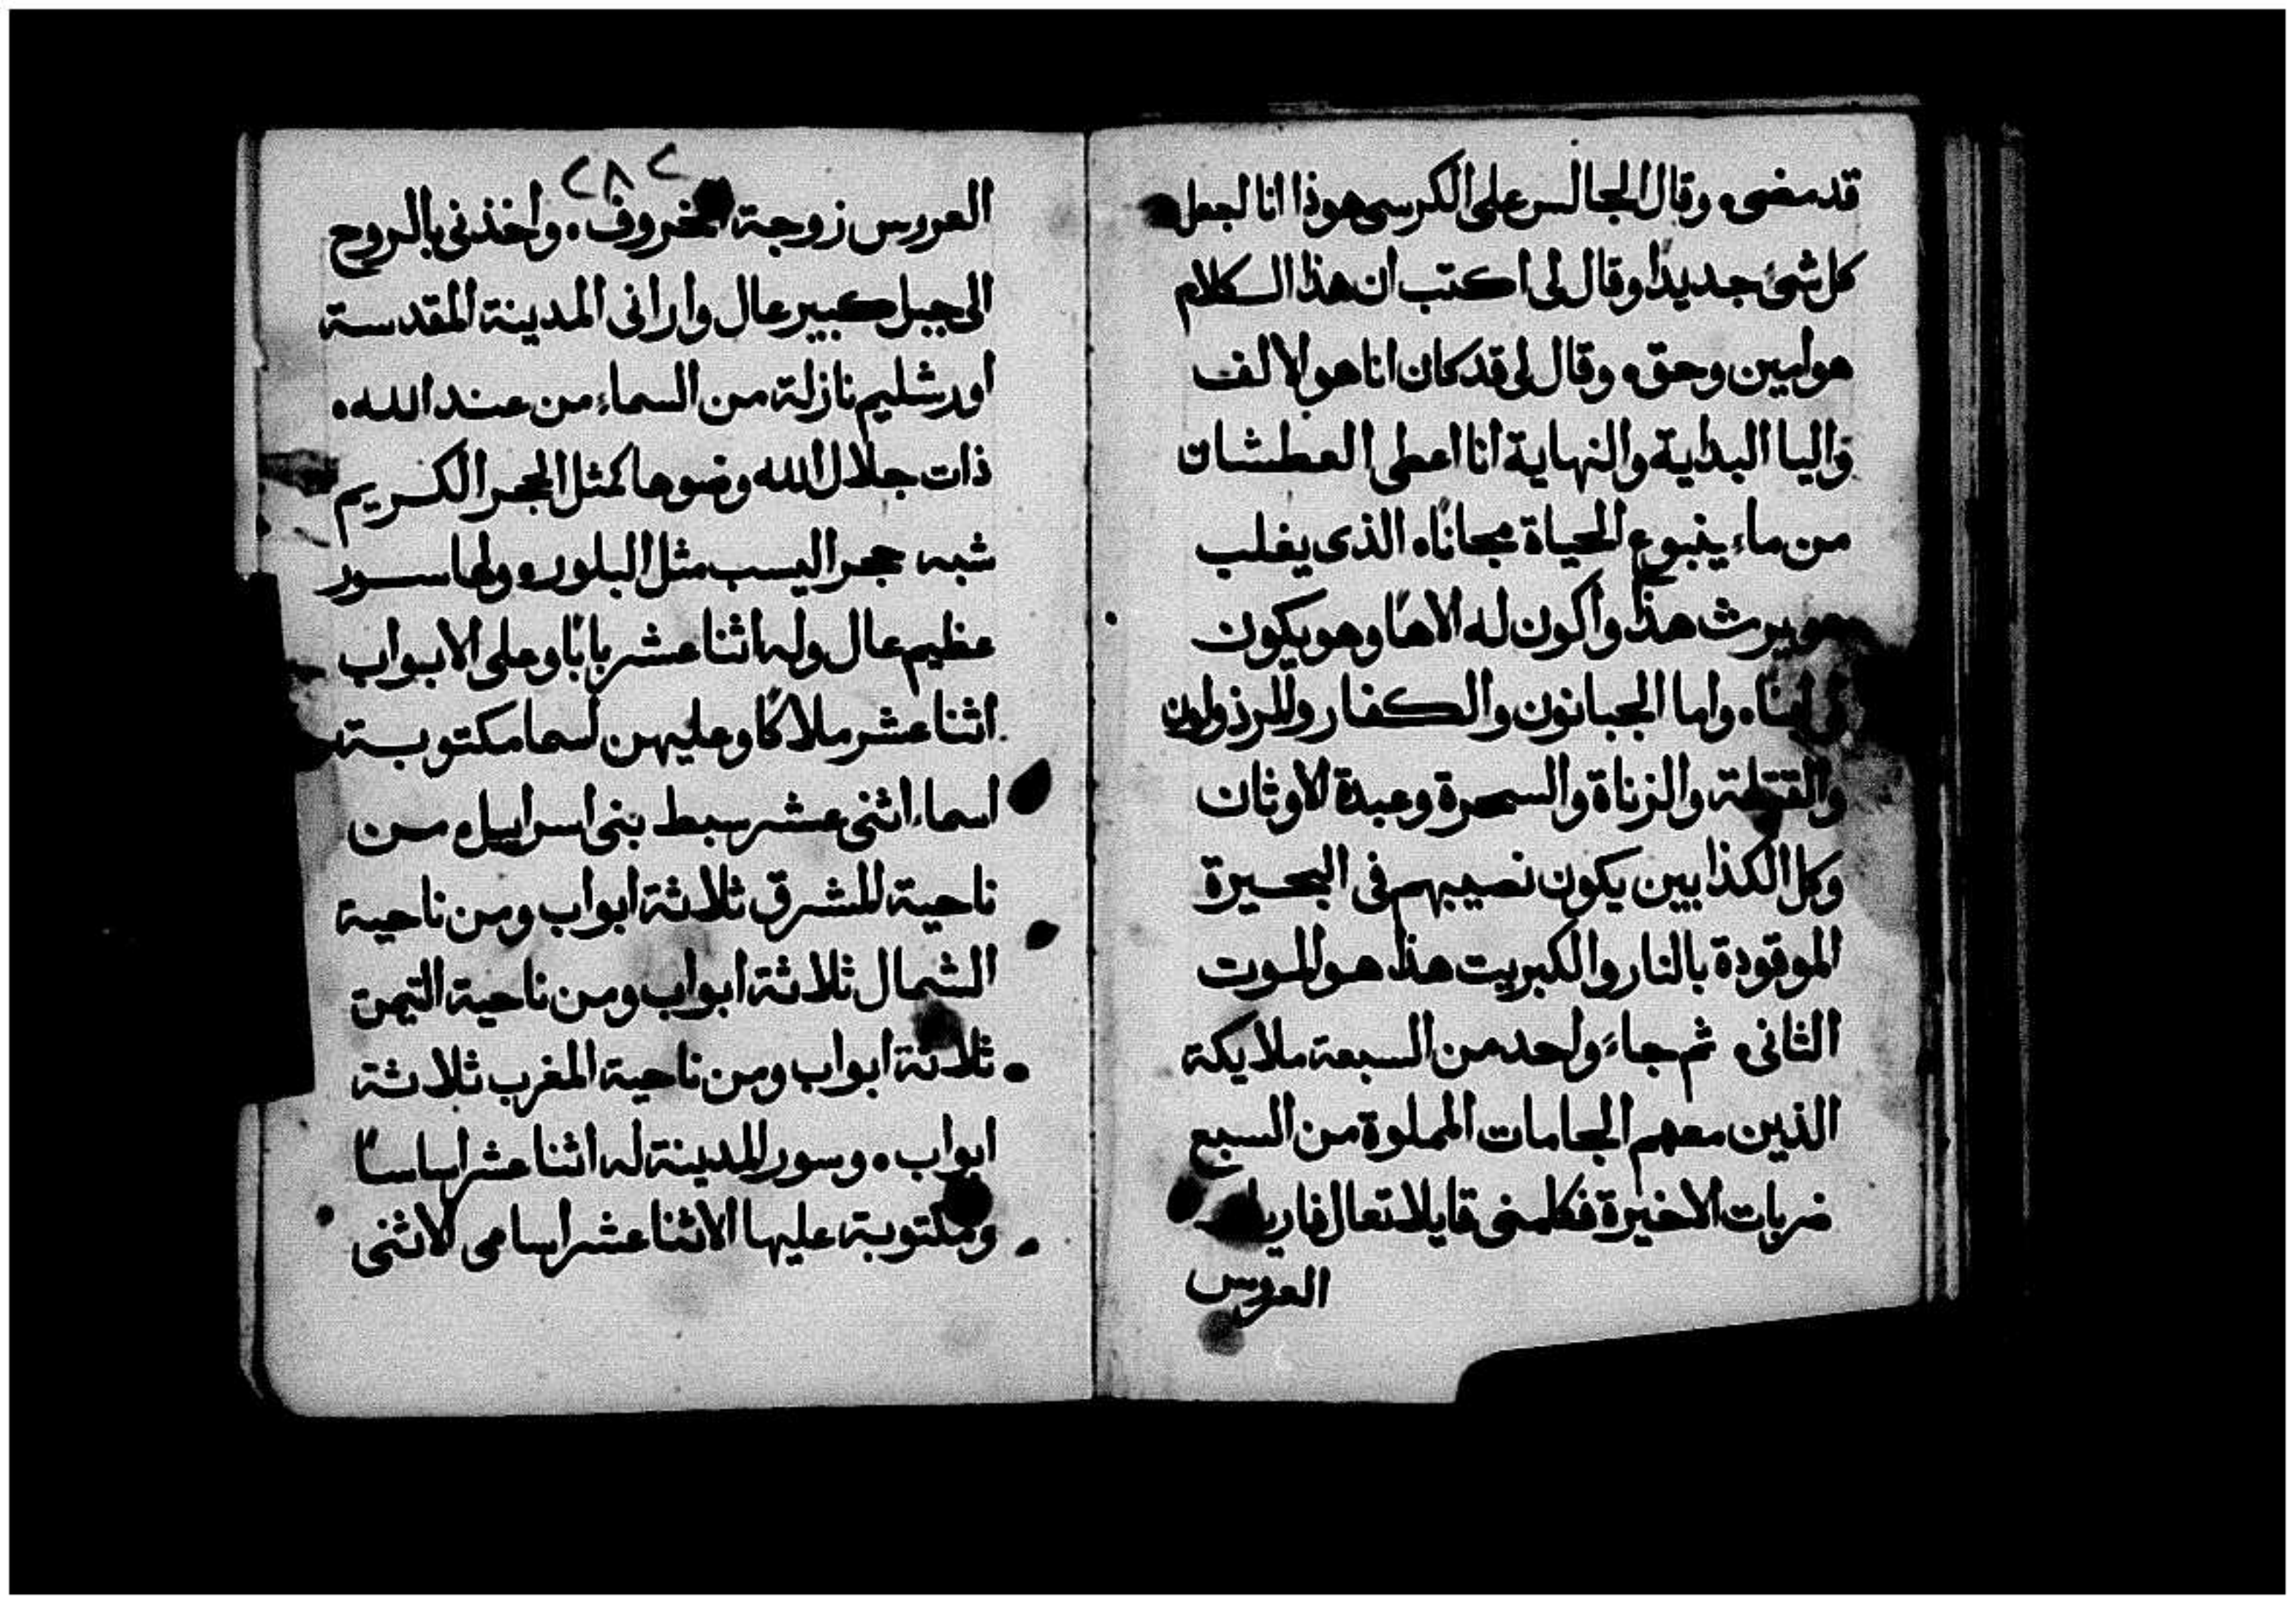 قد مضى، وقال الجالس على الكرسى هوذا انا اجعل
كل شئ جديدًا وقال لى اكتب ان هذا الكلام
هو امين وحق، وقال لى قد كان انا هو الالف
واليا البداية والنهاية انا اعطى العطشان
من ماء ينبوع الحياة مجانًا، الذى يغلب
هو يرث هذا واكون له الاهًا وهو يكون
لى ابنًا، واما الجبانون والكفار والمرذولون
والقتلة والزناة والسحرة وعبدة الاوثان
وكل الكذابين يكون نصيبهم فى البحيرة
الموقودة بالنار والكبريت هذا هو الموت
الثانى، ثم جاءَ واحد من السبعة ملايكة
الذين معهم الجامات المملوة من السبع
ضربات الاخيرة فكلمنى قايلا تعال فاريك
العروس
٢٨٢
العروس زوجة الخروف، واخذنى بالروح
الى جبل كبير عال وارانى المدينة المقدسة
اورشليم نازلة من السماء من عند الله،
ذات جلال الله وضوها كمثل الحجر الكريم
شبه حجر اليسب مثل البلور، ولها سور
عظيم عال وله اثنا عشر بابًا وعلى الابواب
اثنا عشر ملاكًا وعليهن اسما مكتوبة
اسماء اثنى عشر سبط بنى اسراييل، من
ناحية المشرق ثلاثة ابواب ومن ناحية
الشمال ثلاثة ابواب ومن ناحية التيمن
ثلاثة ابواب ومن ناحية المغرب ثلاثة
ابواب، وسور المدينة له اثنا عشر اساسًا
ومكتوبة عليها الاثنا عشر اسامى الاثنى